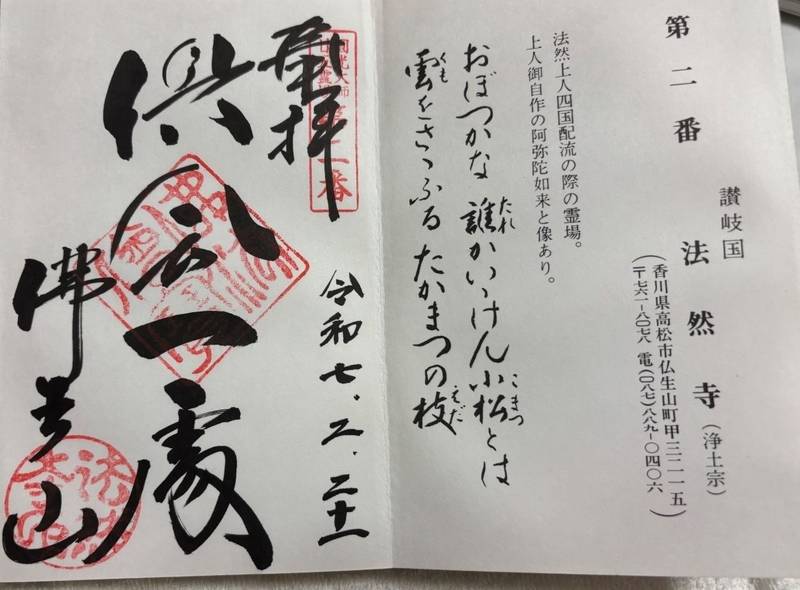 第二番
讃岐国
法然寺(浄土宗)
(香川県高松市仏生山町甲三二一五
〒七六一-八〇七八 電(〇八七)八八九-〇四〇六)
法然上人四国配流の際の霊場。
上人御自作の阿弥陀如来と像あり。
おぼつかな 誰かいゝけん小松とは
たれ
こまつ
雲をさゝふる たかまつの枝
くも
えだ
奉拝
第二番
令和七、二、二十一
倶会一處
佛生山